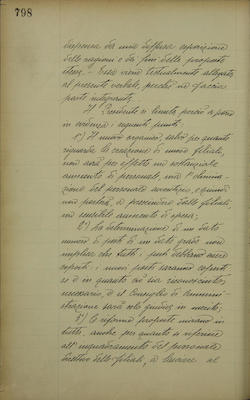 798
dispensa da una diffusa esposizione
delle ragioni e dei fini delle proposte
stesse. - Esso viene testualmente allegato
al presente verbale, perché ne faccia
parte integrante.
Il Presidente si limita, perciò, a porre
in evidenza i seguenti punti:
1°) Il nuovo organico, salvo per quanto
riguarda la creazione di nuove filiali,
non avrà per effetto un sostanziale
aumento di personale, ma l'elimina-
zione del personale avventizio, e quindi
non porterà, a prescindere dalle filiali,
un sensibile aumento di spesa;
2°) La determinazione di un dato
numero di posti in un dato grado non
implica che tutti i posti debbano essere
coperti: i nuovi posti saranno coperti
se ed in quanto ciò sia riconosciuto
necessario, ed il Consiglio di Ammini-
strazione sarà solo giudice in merito;
3°) Le riforme proposte mirano in
tutto, anche per quanto si riferisce
all'inquadramento del personale
direttivo delle filiali, a lasciare al